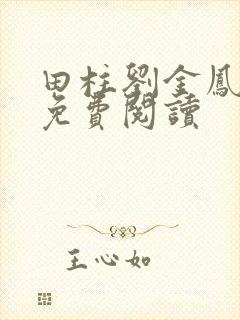 田柱劉金鳳
免費閱讀
王心如